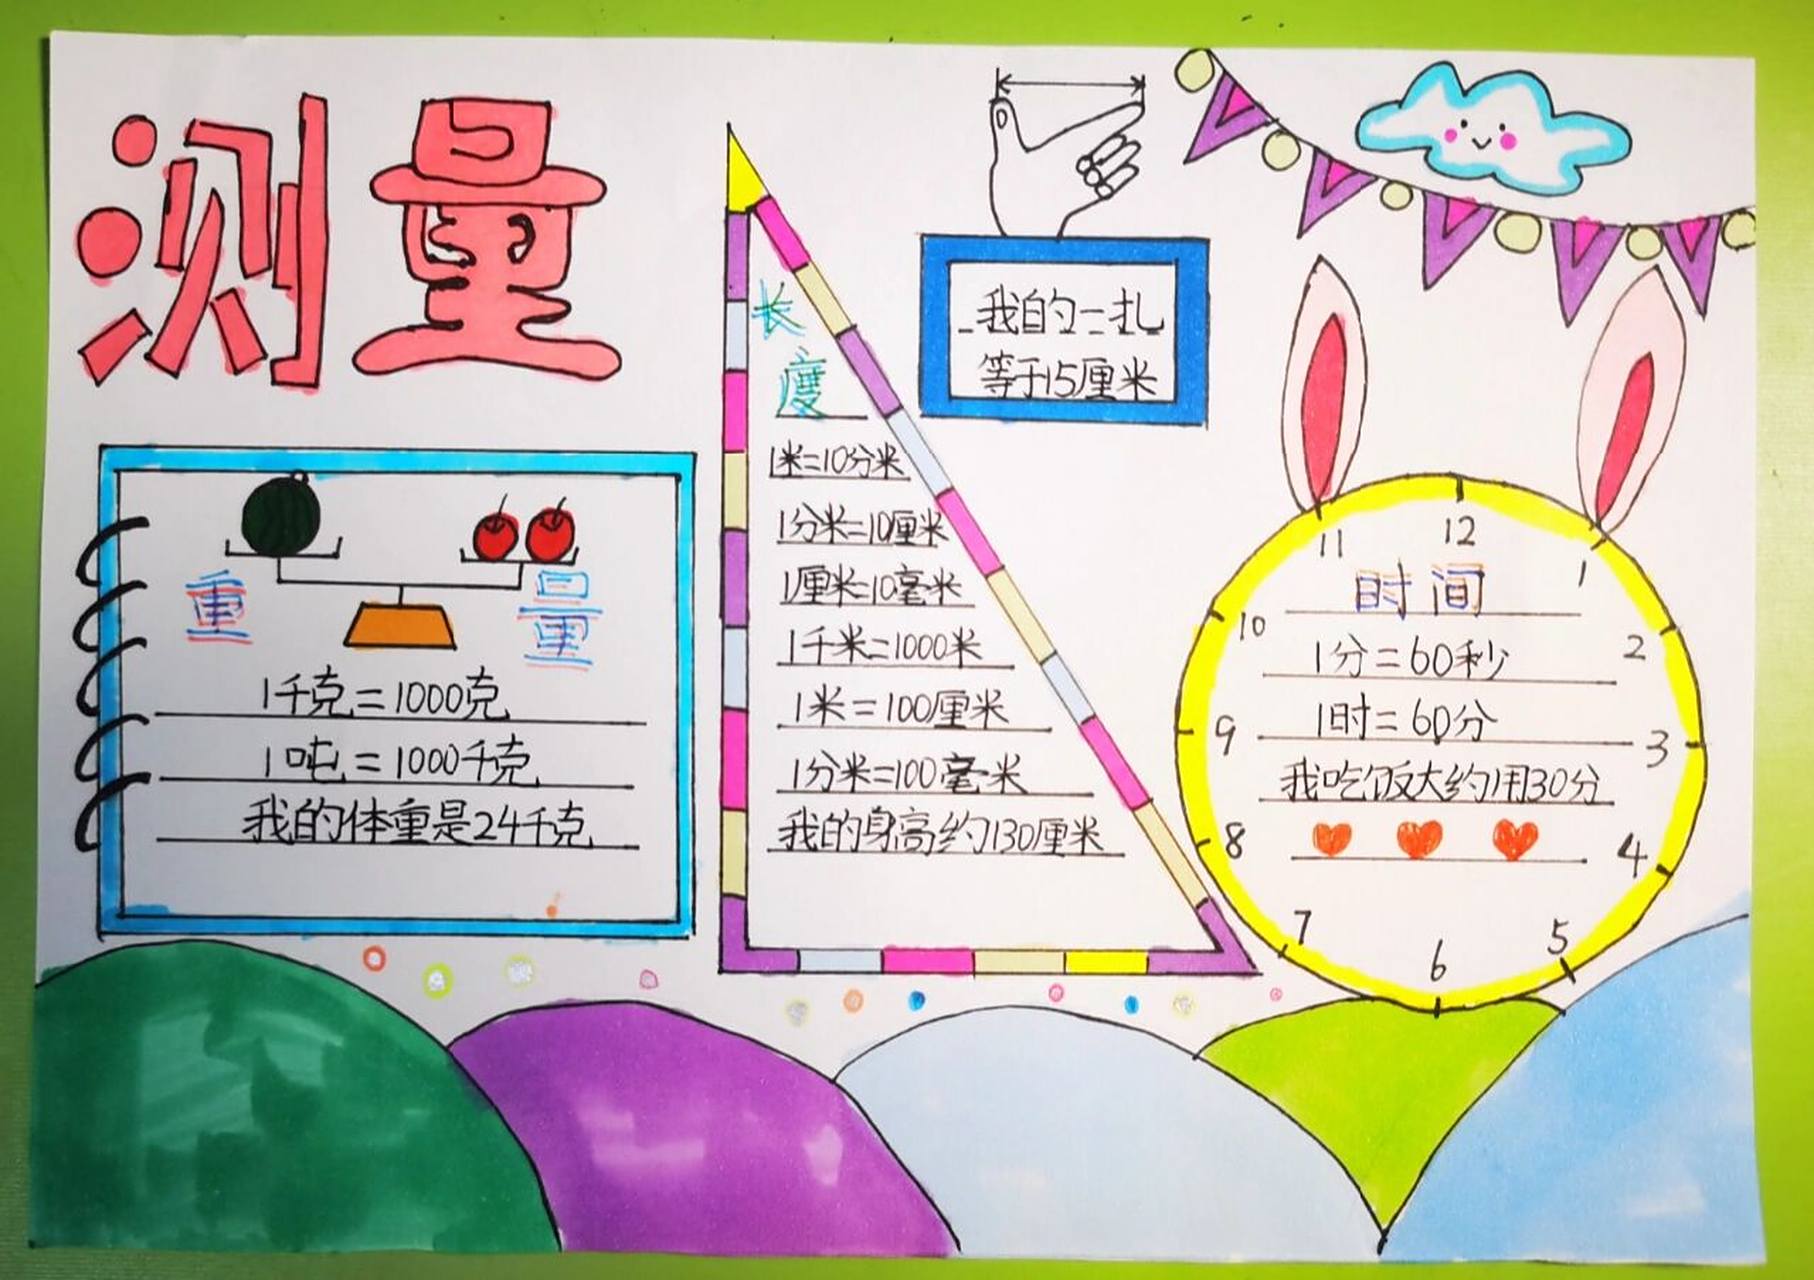 测量
重量
1千克=1000克
1吨=1000千克
我的体重是24千克
长度
1米=10分米
1分米=10厘米
1厘米=10毫米
1千米=1000米
1米=100厘米
1分米=100毫米
我的身高约130厘米
我的一扎
等于15厘米
时间
1分=60秒
1时=60分
我吃饭大约用30分
12
1
2
3
4
5
6
7
8
9
10
11